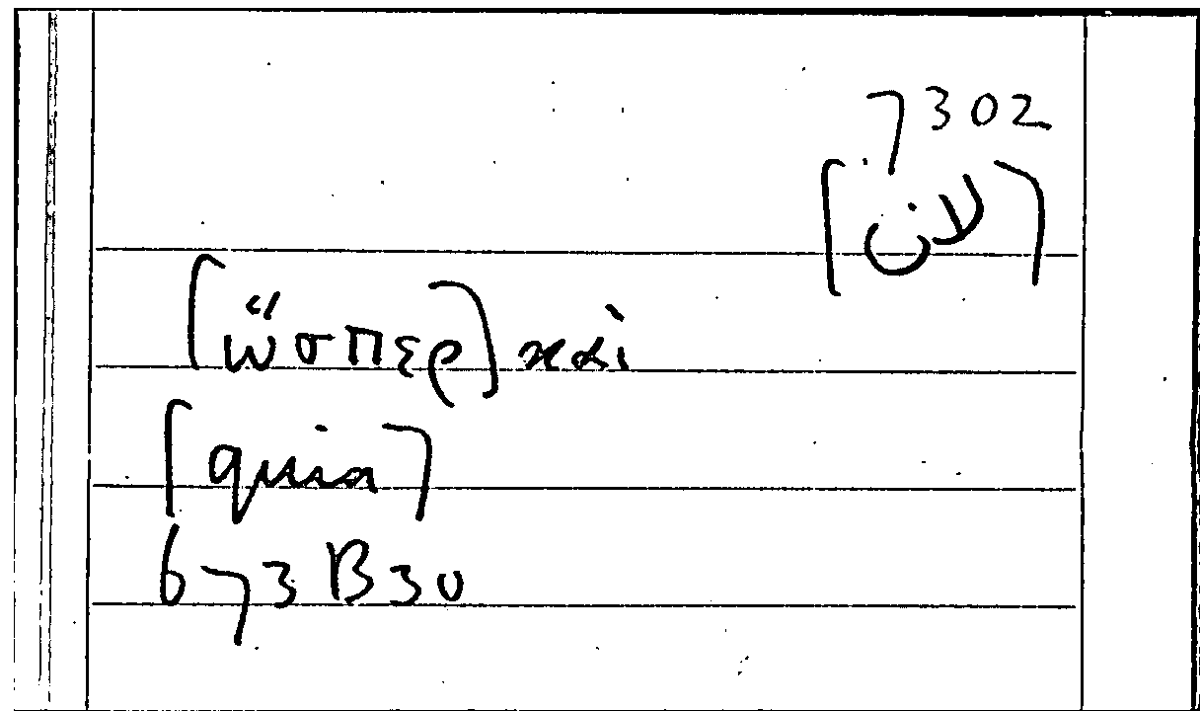 7302
[لان]
[ὥσπερ] καὶ
[quia]
673 B 30